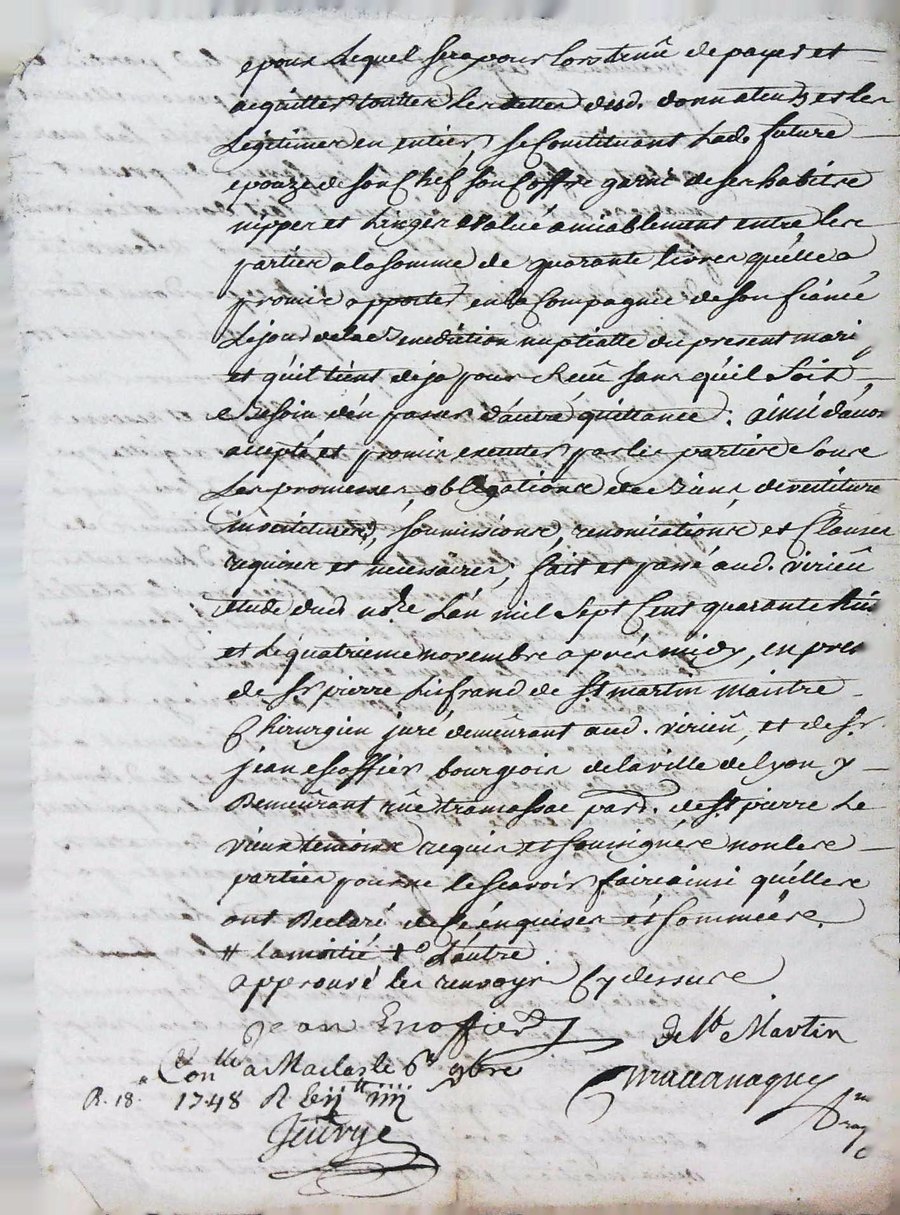 epoux lequel sera pour lors tenû de payer et
acquitter touttes les dettes dud. donnateur, et les
legitimes en entier, se Constituant lad. future
epouze de son Chef son Coffre garni de ses habits
nippes et linges evalué amiablement entre les
parties a la somme de quarante livres qu'elle a
promis apporter en la Compagnie de son fiancé
le jour de la Benediction nuptialle du present mari
et qu'il tient deja pour Reçû sans qu'il soit
Besoin d'en passer d'autre quittance. ainsi
accepté et promis executer par les parties sous
les promesses, obligations de Biens devestiture
investiture, soumissions, renonciations et Clauses
requises et necessaires, fait et passé aud. virieû
etude dud. no.re L'an mil sept Cent quarante huit
et le quatrieme novembre apres midy, en pres
de Sr pierre de St martin maistre
Chirurgien juré demeûrant aud. virieû, et de Sr.
jean escoffier bourgeois de la ville de lyon y
Demeûrant rûe tramassac par. de St pierre le
vieux temoins requis et soussignés non les
parties pour ne le scavoir faire ainsi qu'elles
ont Declaré de ce enquises et sommées
# la moitié d'autre
approuvé les renvoys Cy dessus
Jean Escoffier de St Martin
Conlle a Maclas le 6e 9bre
R. 18. 1748 R